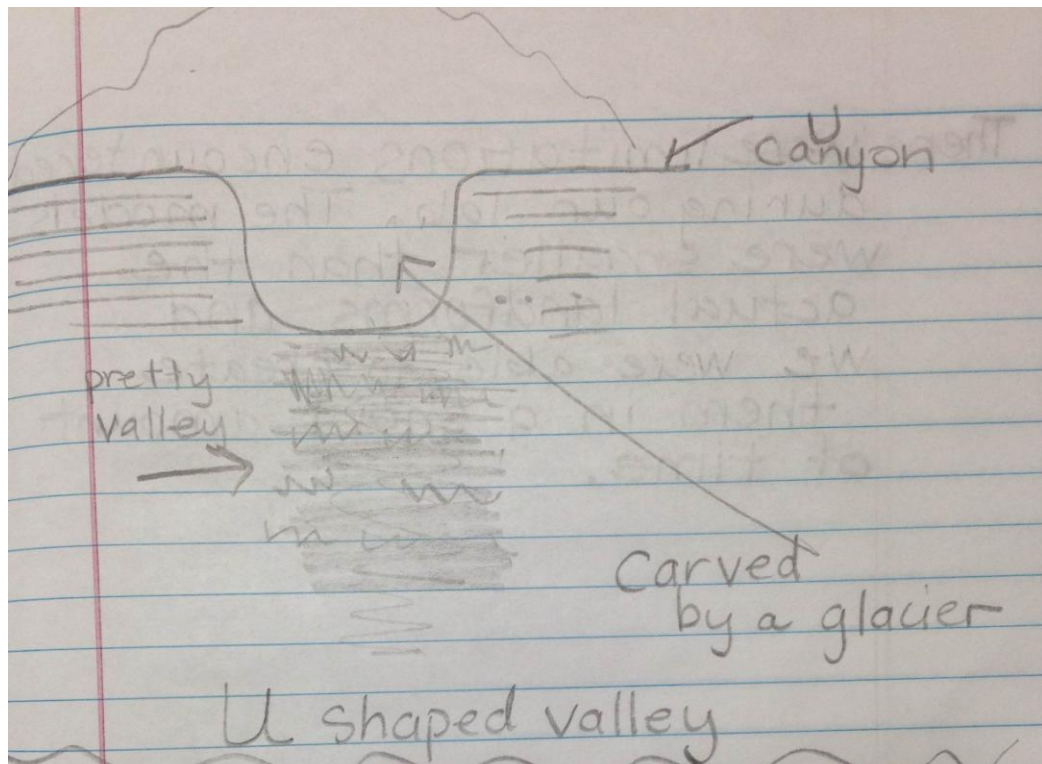 U
canyon
pretty
valley
Carved
by a glacier
U shaped valley